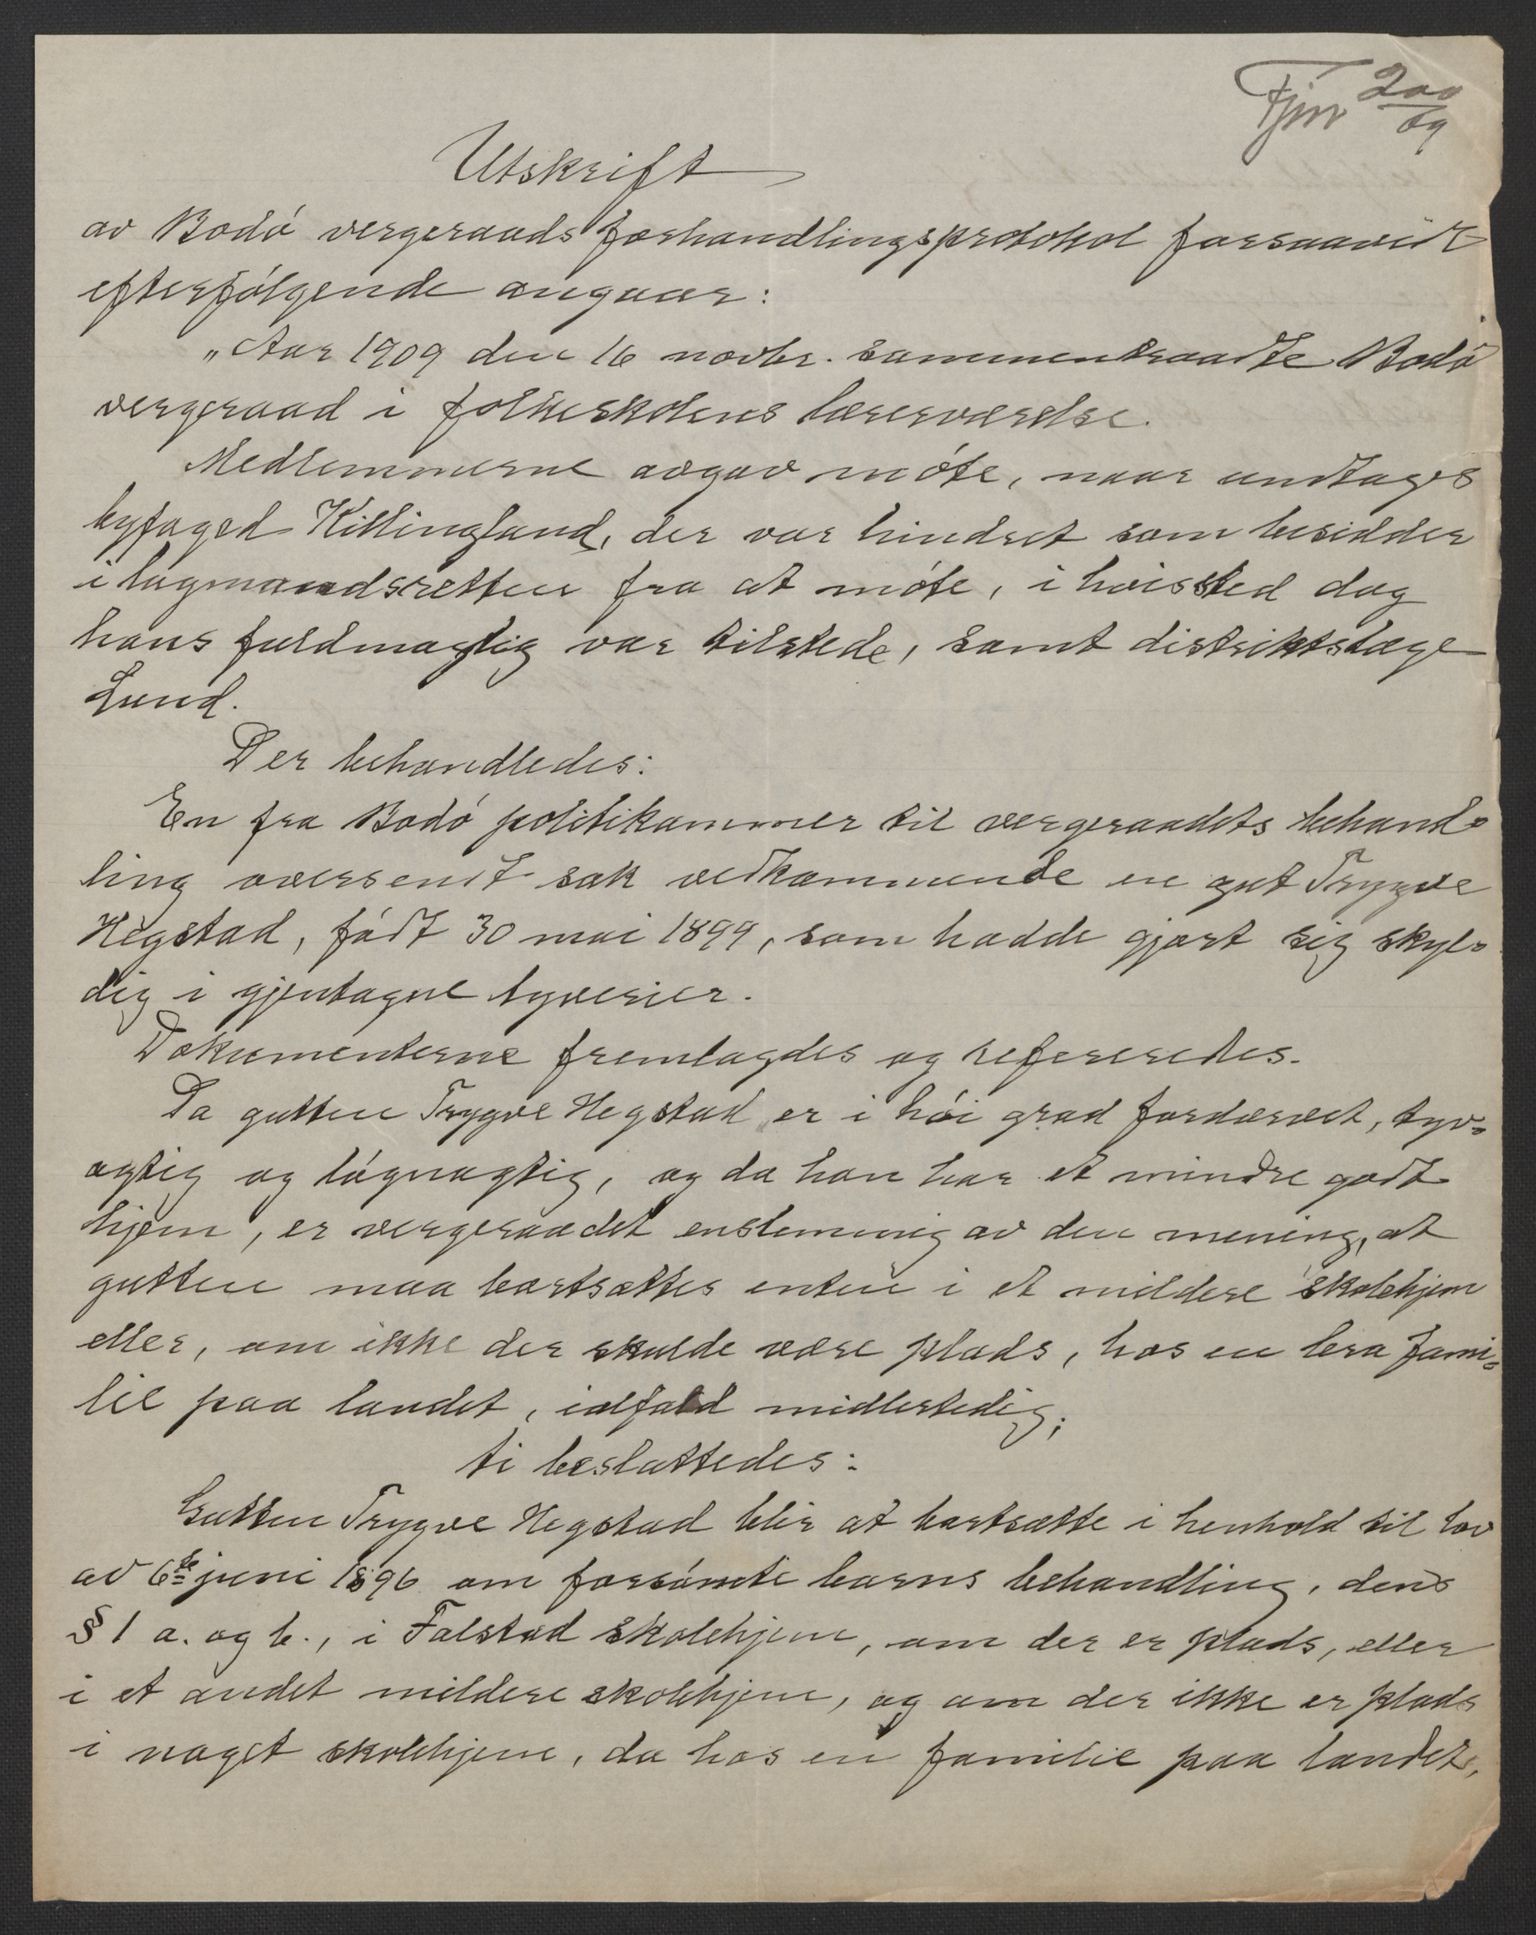 200
09
Utskrift
av Bodó vergeraads forhandlingsprotokol forsaavidt
efterfølgende angaar:
"Aar 1909 den 16 novbr. sammentraadte Bodó
vergeraad i folkeskolens lærerværelse.
Medlemmerne avgav móte, naar undtages
byfoged Killingland, der var hindret som besidder
i lagmandsretten fra at móte, i hvis sted dog
hans fuldmægtig var tilstede, samt distriktslæge
Lund.
Der behandledes:
En fra Bodó politikammer til vergeraadets behand-
ling oversendt sak vedkommende en gut Trygve
Hegstad, fódt 30 mai 1899, som hadde gjort sig skyl-
dig i gjentagne tyverier.
Dokumenterne fremlagdes og refereredes.
Da gutten Trygve Hegstad er i hói grad fordærvet, tyv-
agtig og lógnagtig, og da han har et mindre godt
hjem, er vergeraadet enstemmig av den mening, at
gutten maa bortsættes enten i et mildere skolehjem
eller, om ikke der skulde være plads, hos en bra fami-
lie paa landet, ialfald midlertidig;
ti besluttedes:
Gutten Trygve Hegstad blir at bortsætte i henhold til lov
av 6te juni 1896 om forsómte barns behandling, dens
§ 1 a. og b., i Falstad skolehjem, om der er plads, eller
i et andet mildere skolehjem, og om der ikke er plads
i noget skolehjem, da hos en familie paa landet,